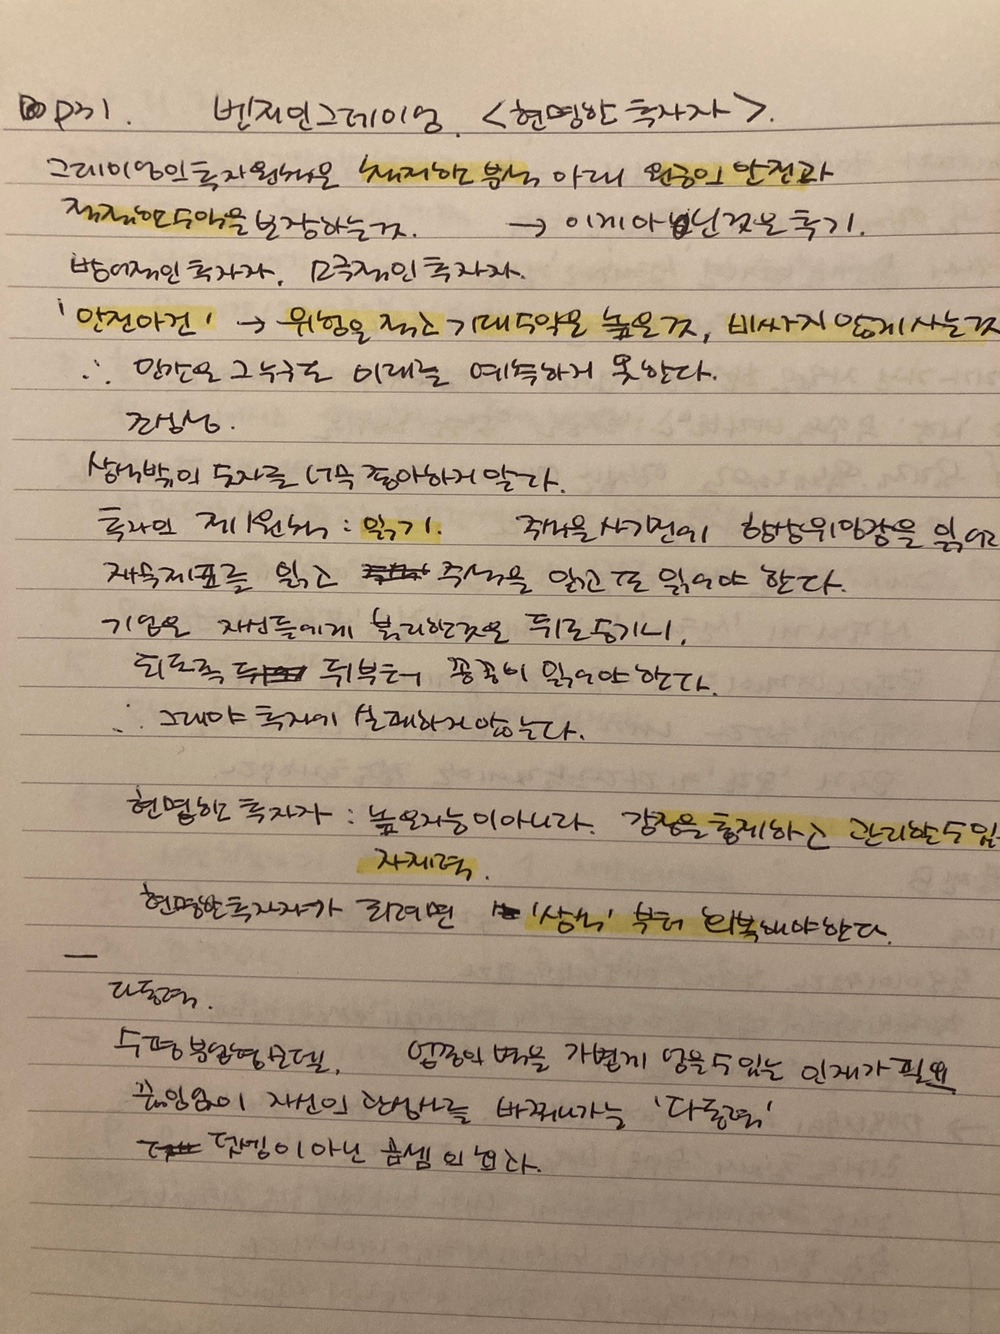 p31. 벤저민 그레이엄. <현명한 투자자>.
그레이엄의 투자원칙은 철저한 분석 아래 원금의 안전과
적절한 수익을 보장하는 것. → 이게 아닌 것은 투기.
방어적인 투자자, 적극적인 투자자.
'안전마진' → 위험은 적고 기대수익은 높은 것, 비싸지 않게 사는 것
∴ 인간은 그 누구도 미래를 예측하지 못한다.
조심성.
상식밖의 숫자를 너무 좋아하지 말라.
투자의 제1원칙 : 읽기. 주식을 사기 전에 항상 위임장을 읽고
재무제표를 읽고 주석을 읽고 또 읽어야 한다.
기업은 자신들에게 불리한 것은 뒤로 숨기니,
되도록 뒤부터 꼼꼼이 읽어야 한다.
∴ 그래야 투자에 실패하지 않는다.
현명한 투자자 : 높은 지능이 아니라. 감정을 통제하고 관리할 수 있
자제력.
현명한 투자자가 되려면 '상식' 부터 회복해야 한다.
—
다동력.
수평분업형 모델, 업종의 벽을 가볍게 넘을 수 있는 인재가 필요
끊임없이 자신의 관심사를 바꿔나가는 '다동력'
덧셈이 아닌 곱셈의